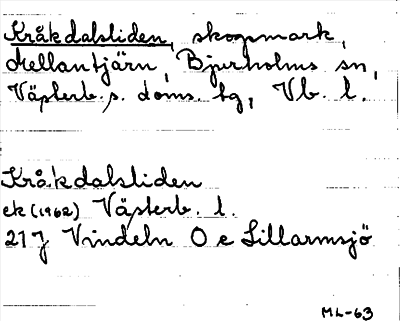 Kråkdalsliden, skogsmark,
Mellantjärn, Bjurholms sn,
Västerb. s. doms. tg, Vb. l.
Kråkdalsliden
ek (1962) Västerb. l.
21 J Vindeln O e Lillarmsjö
ML-63